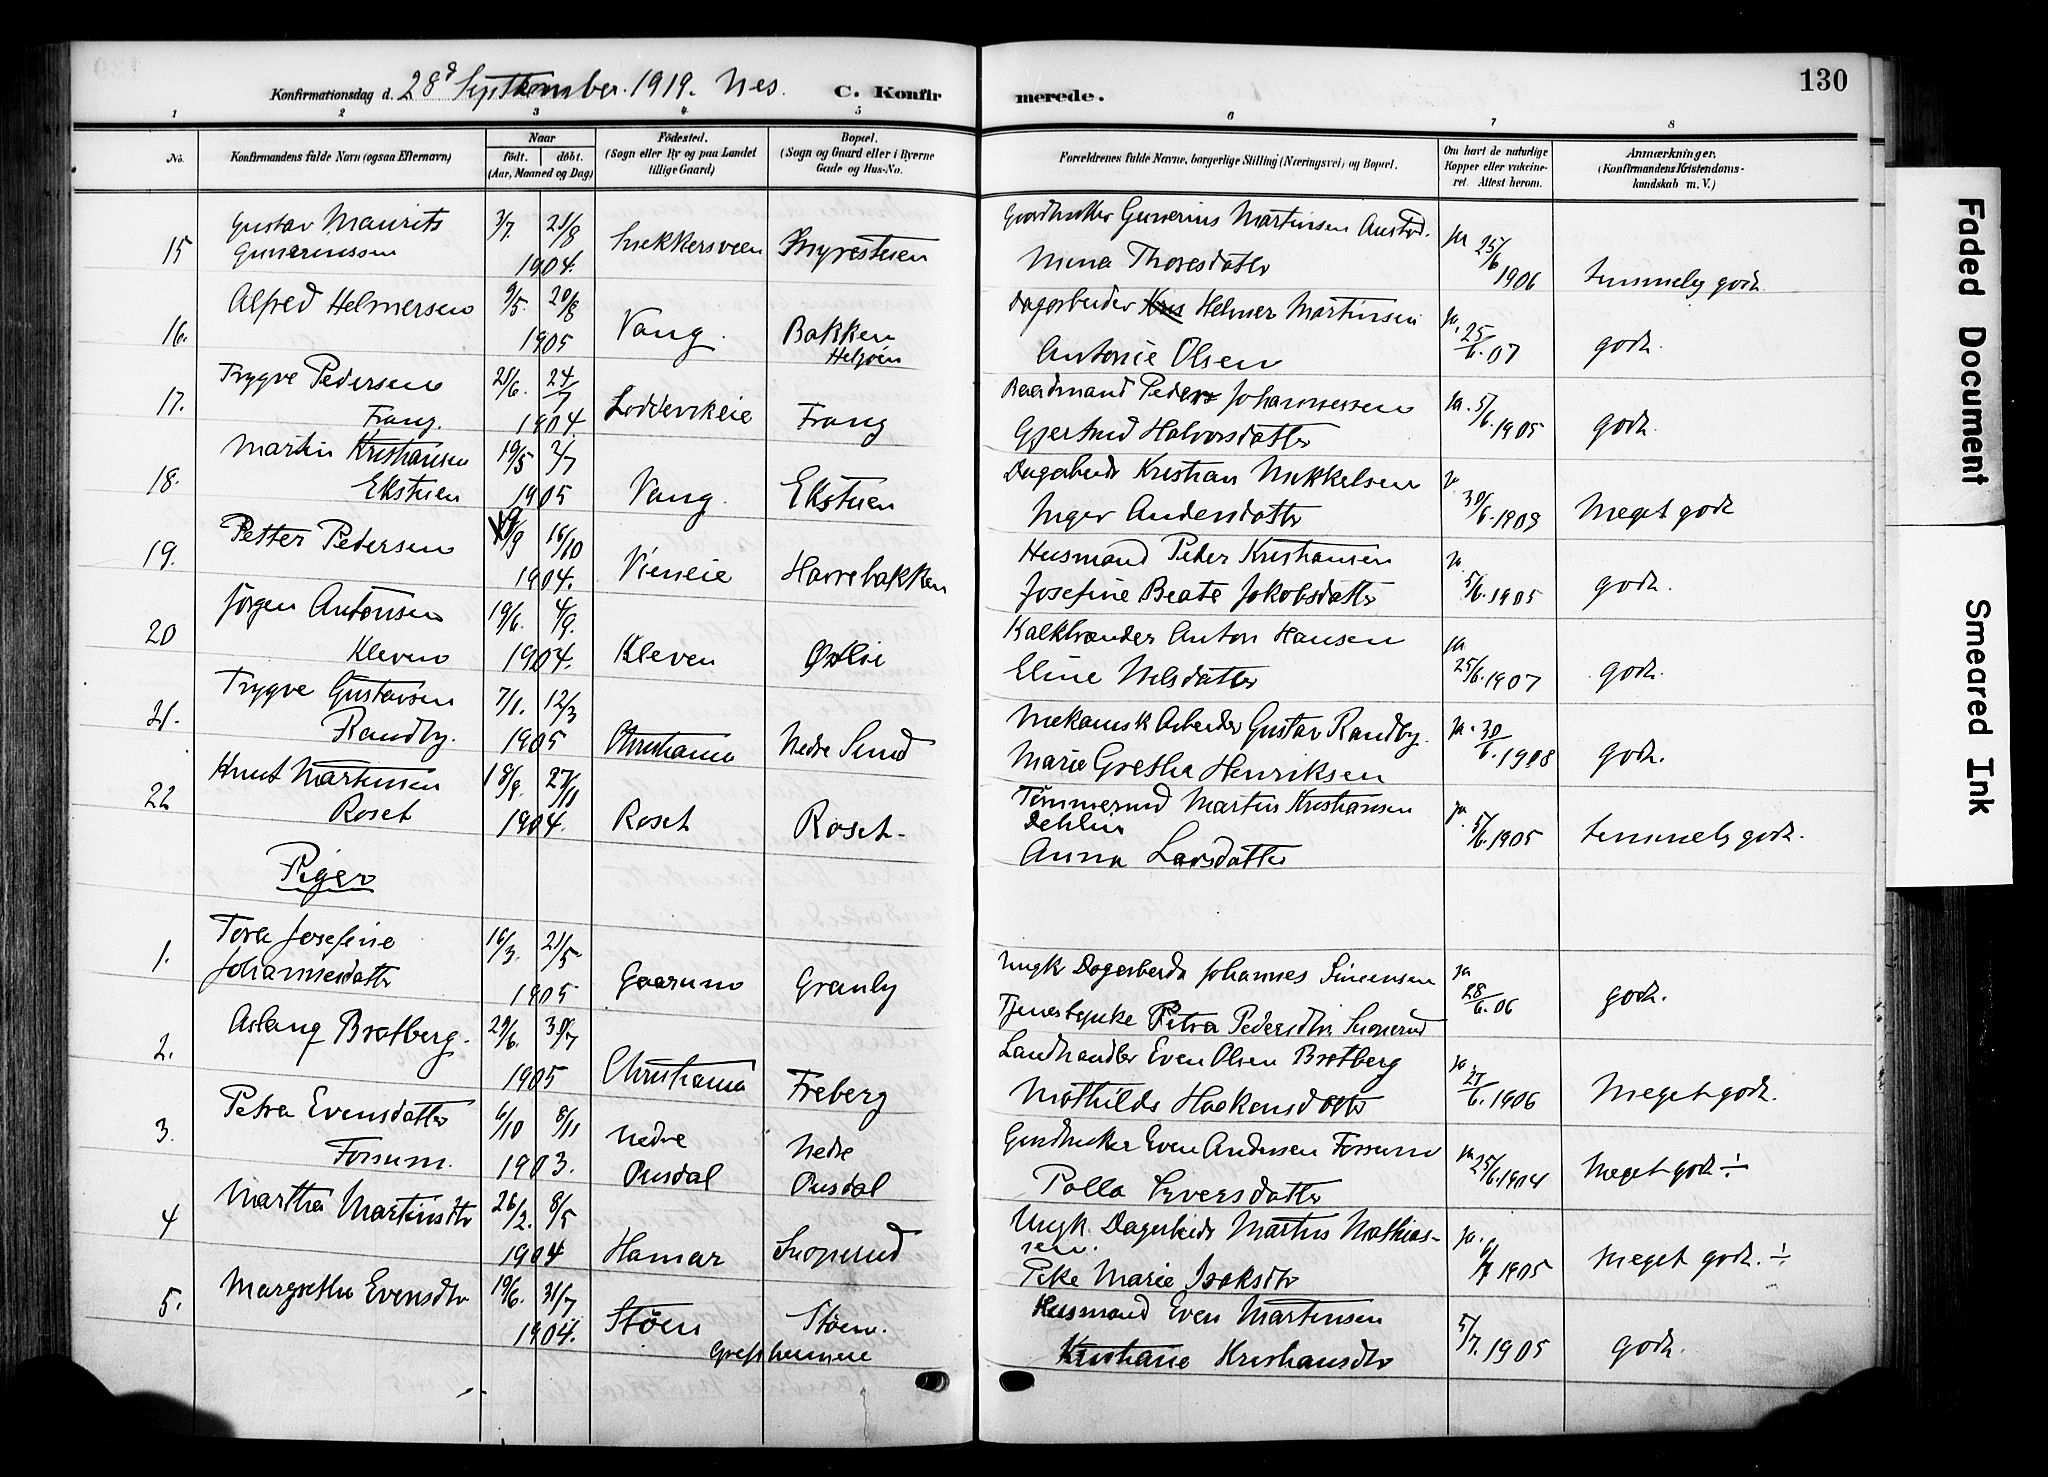 130
Konfirmationsdag d. 28d September 1919. Nes. C. Konfirmerede.
1 2 3 4 5 6 7 8
No.
Konfirmandens fulde Navn (ogsaa Efternavn)
Naar
født. døbt.
(Aar, Maaned og Dag)
Fødested.
(Sogn eller By og paa Landet
tillige Gaard)
Bopæl.
(Sogn og Gaard eller i Byerne
Gade og Hus-No.
Forældrenes fulde Navne, borgerlige Stilling (Næringsvei) og Bopæl.
Om havt de naturlige
Kopper eller vakcine-
ret. Attest herom.
Anmærkninger.
(Konfirmandens Kristendoms-
kundskab m. V.)
15 Gustav Maurits 3/7. 21/8 Snekkersveen Myrestuen Gunerius Martinsen ja 25/6
Gunerinssen 1904. Mina Thoresdatter 1906 temmelig godt.
16. Alfred Helmersen 9/5. 20/8 Vang. Bakken Dagarbeider Helmer Martinsen ja. 25/6.07 godt.
1905 Antonie Olsen
17. Trygve Pedersen 21/6. 24/7 Frang Baadmand Peder Johannessen ja. 5/6.1905 godt.
Frang. 1904. Gjertrud Halvorsdatter
18. Martin Kristiansen 19/5 2/7 Vang. Ekstuen Dagarbeider Kristian Mikkelsen ja
Ekstuen 1905 Inger Andersdatter 30/6.1909 Meget godt
19. Petter Pedersen 19/9 16/10 Vieneie Harrebakken Husmand Peder Kristiansen ja
1904. Josefine Beate Jakobsdatter 5/6.1905 godt.
20 Jørgen Antonsen 19/6. 4/9. Kleven Østlie Kalkbrænder Anton Hansen ja
Kleven 1904. Eline Nelsdatter 25/6.1907 godt.
21. Trygve Gustavsen 7/1. 12/3 Christiania Nedre Sund Mekanisk Arbeider Gustav Randby. ja. 30/6.1908 godt.
Randby. 1905 Marie Grethe Henriksen
22 Knut Martinsen 18/8. 27/11 Roset Roset. Tømmermand Martin Kristiansen ja. 5/6.1905 temmelig godt.
Roset 1904. Dehlin
Anna Larsdatter
Piger
1. Tora Josefine 16/3. 21/5 Granby Ungk Dagarbeider Johannes Simensen ja 28/6.06 godt.
Johannesdatter 1905 Petra Pedersdtr Snoperud
2. Aslaug Bratberg. 29/6. 30/7 Christiania Freberg Landhandler Even Olsen Bratberg ja 27/6.1906 Meget godt.
1905 Mathilde Haakensdatter
3. Petra Evensdatter 6/10 8/11 Nedre Nedre Even Andersen Forsund ja 25/6.1904 Meget godt ÷
Forsum. 1903. Pusdal Pusdal Polla Syversdatter
4 Martha Martinsdtr 26/2. 8/5 Hamar Snoperud Ungk. Dagarbeider Martin Mathias- ja. 6/7 1905 Meget godt. ÷
1904 sen.
Marie Isaksdtr
5. Margrethe Evensdtr 19/6. 31/7 Støen Støen. Husmand Even Martinsen 5/7.1905 godt.
1904. Kristiane Kristiansdtr
Faded Document
Smeared Ink